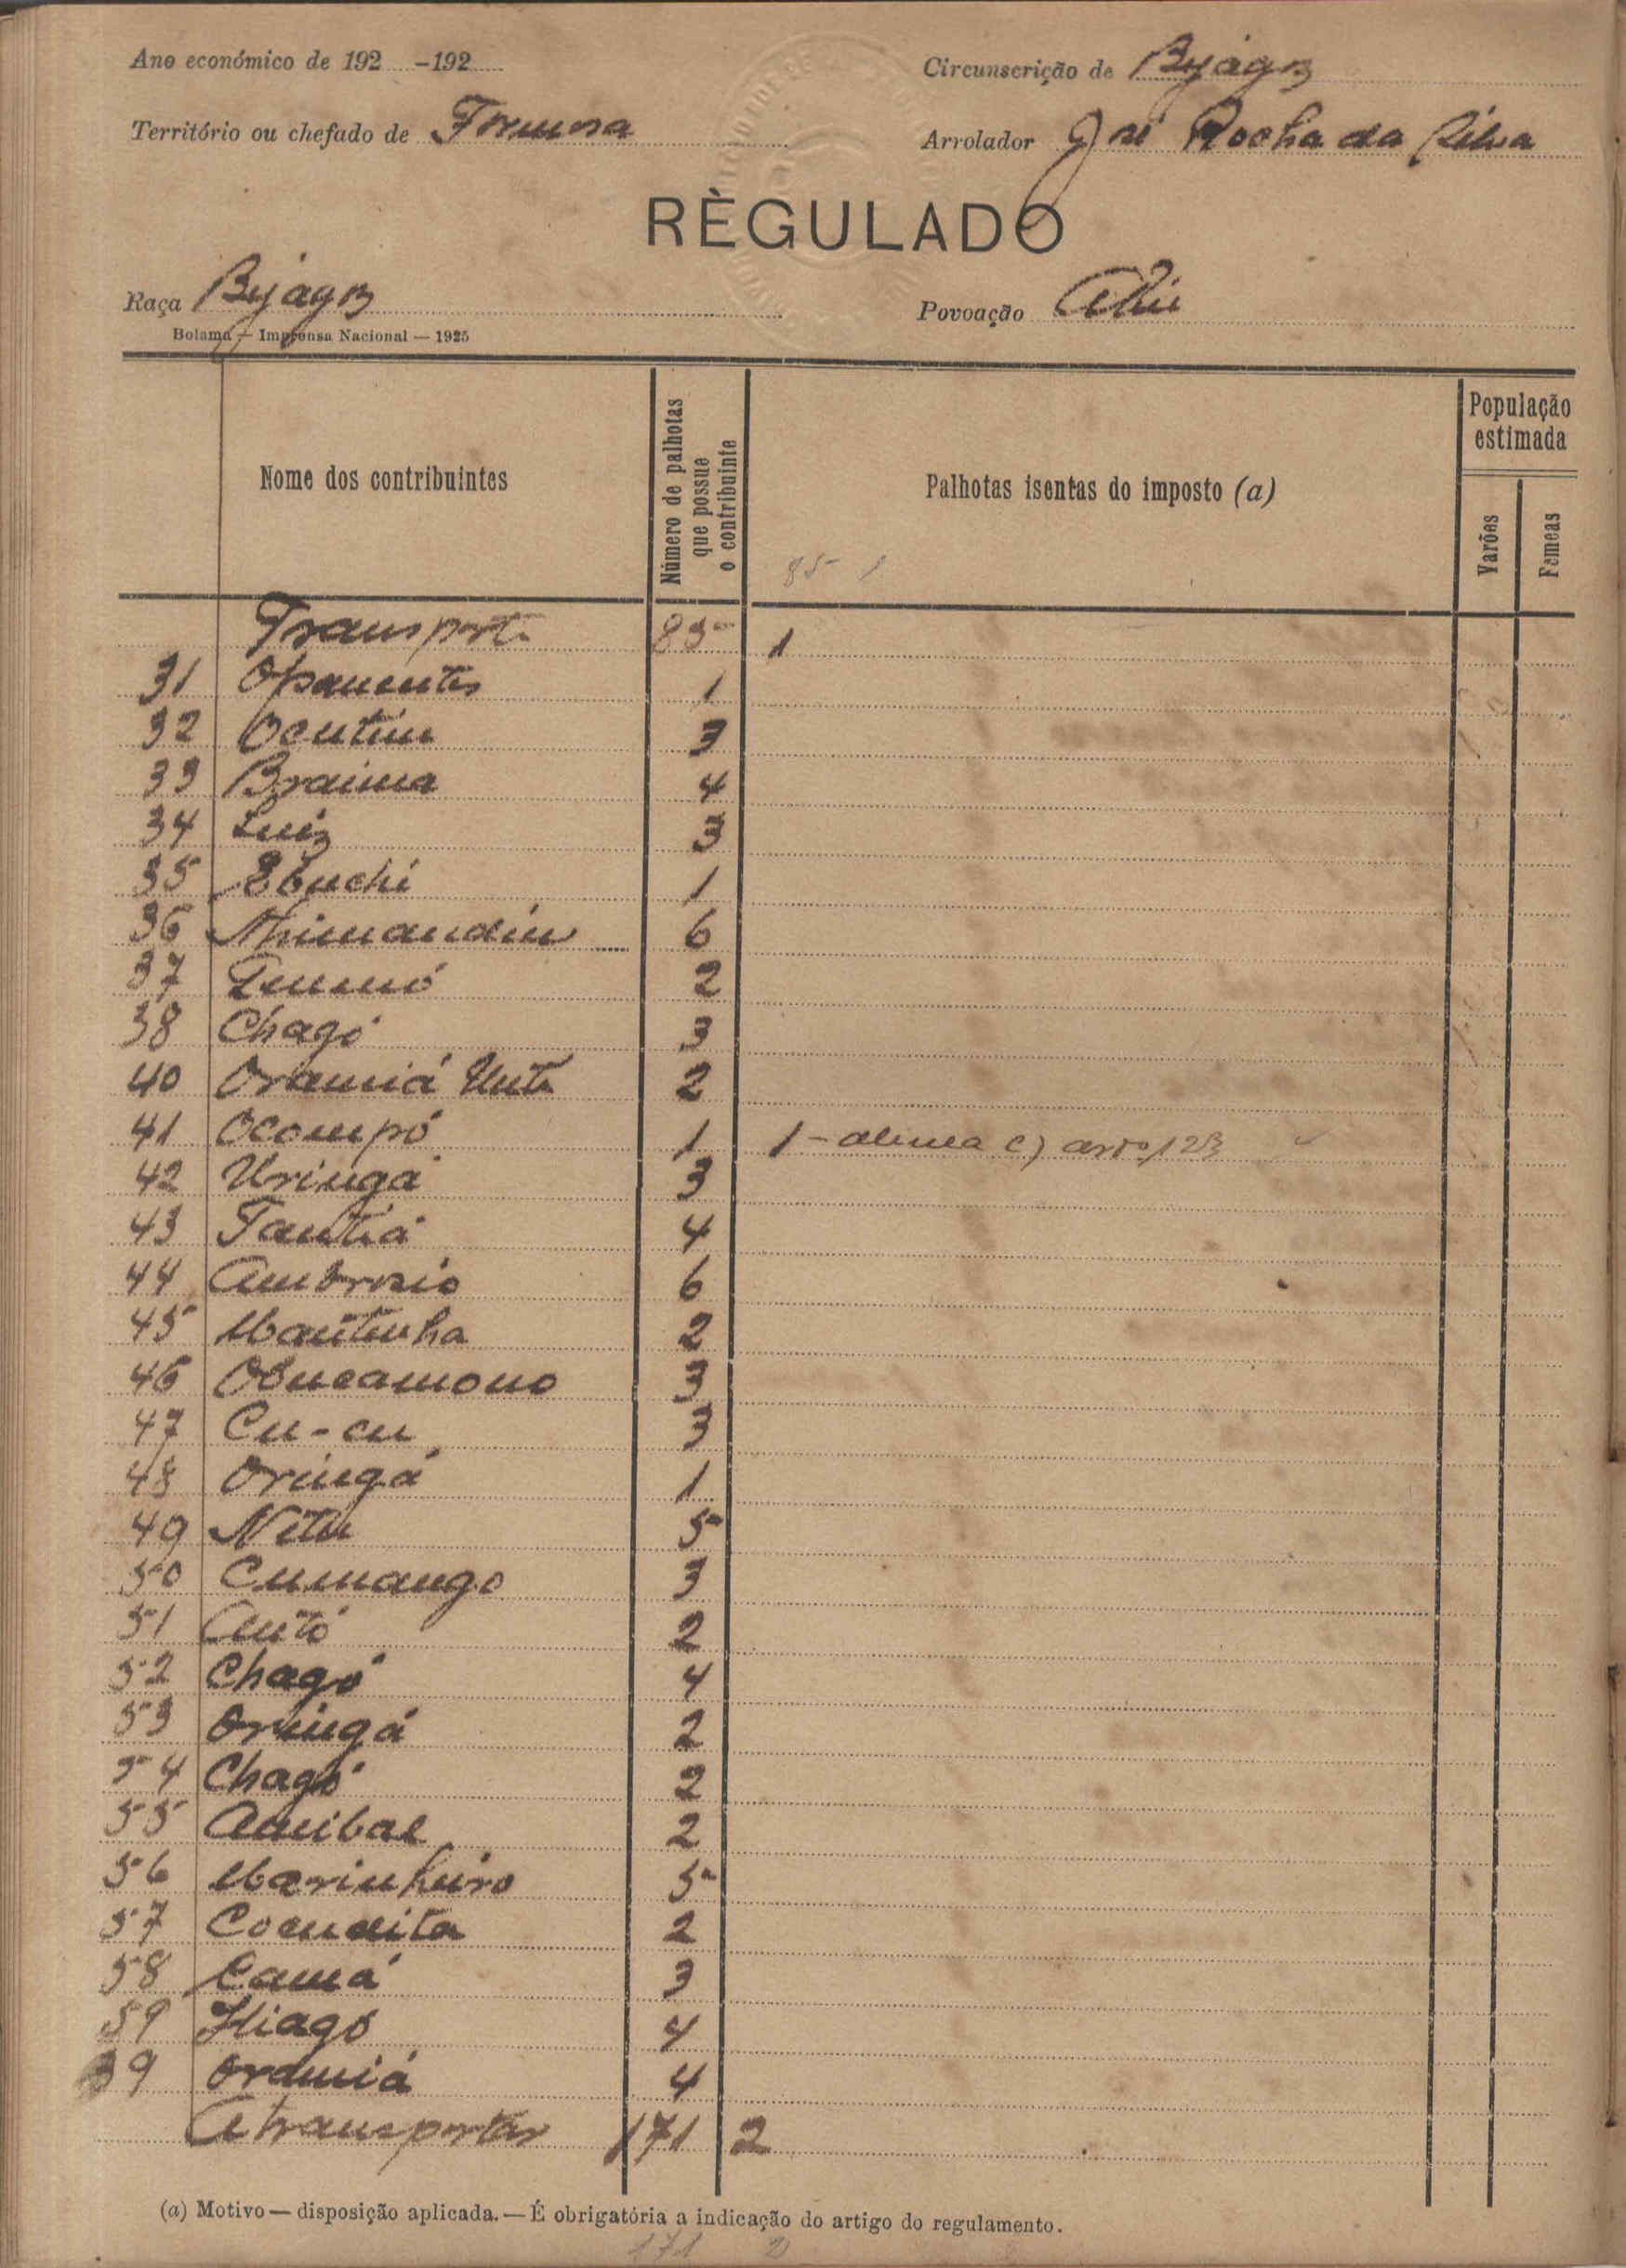 Ano económico de 192 -192
Circunscrição de Byagoz
Território ou chefado de Formosa
Arrolador José Rocha da Silva
RÈGULADO
Raça Byagoz
Povoação Abú
Bolama — Imprensa Nacional — 1925
Nome dos contribuintes
Número de palhotas que possue o contribuinte
Palhotas isentas do imposto (a)
População estimada
Varões
Femeas
85 1
Transporte 85 1
31 Opamentes 1
32 Ocutim 3
33 Braima 4
34 Luiz 3
35 Ebuchi 1
36 Nhimandim 6
37 2
38 Chagó 3
40 Oramiá Unte 2
41 Ocompó 1 1 - alinea c) artº 123
42 Uringá 3
43 Tantiá 4
44 Ambrosio 6
45 Mantenha 2
46 Obucamono 3
47 Cu-cu 3
48 Oringá 1
49 Netu 5
50 Cumango 3
51 Antó 2
52 Chagó 4
53 Oringá 2
54 Chagó 2
55 Anibal 2
56 Marinheiro 5
57 2
58 Camá 3
59 4
39 Oramiá 4
A transportar 171 2
(a) Motivo — disposição aplicada. — É obrigatória a indicação do artigo do regulamento.
171 2